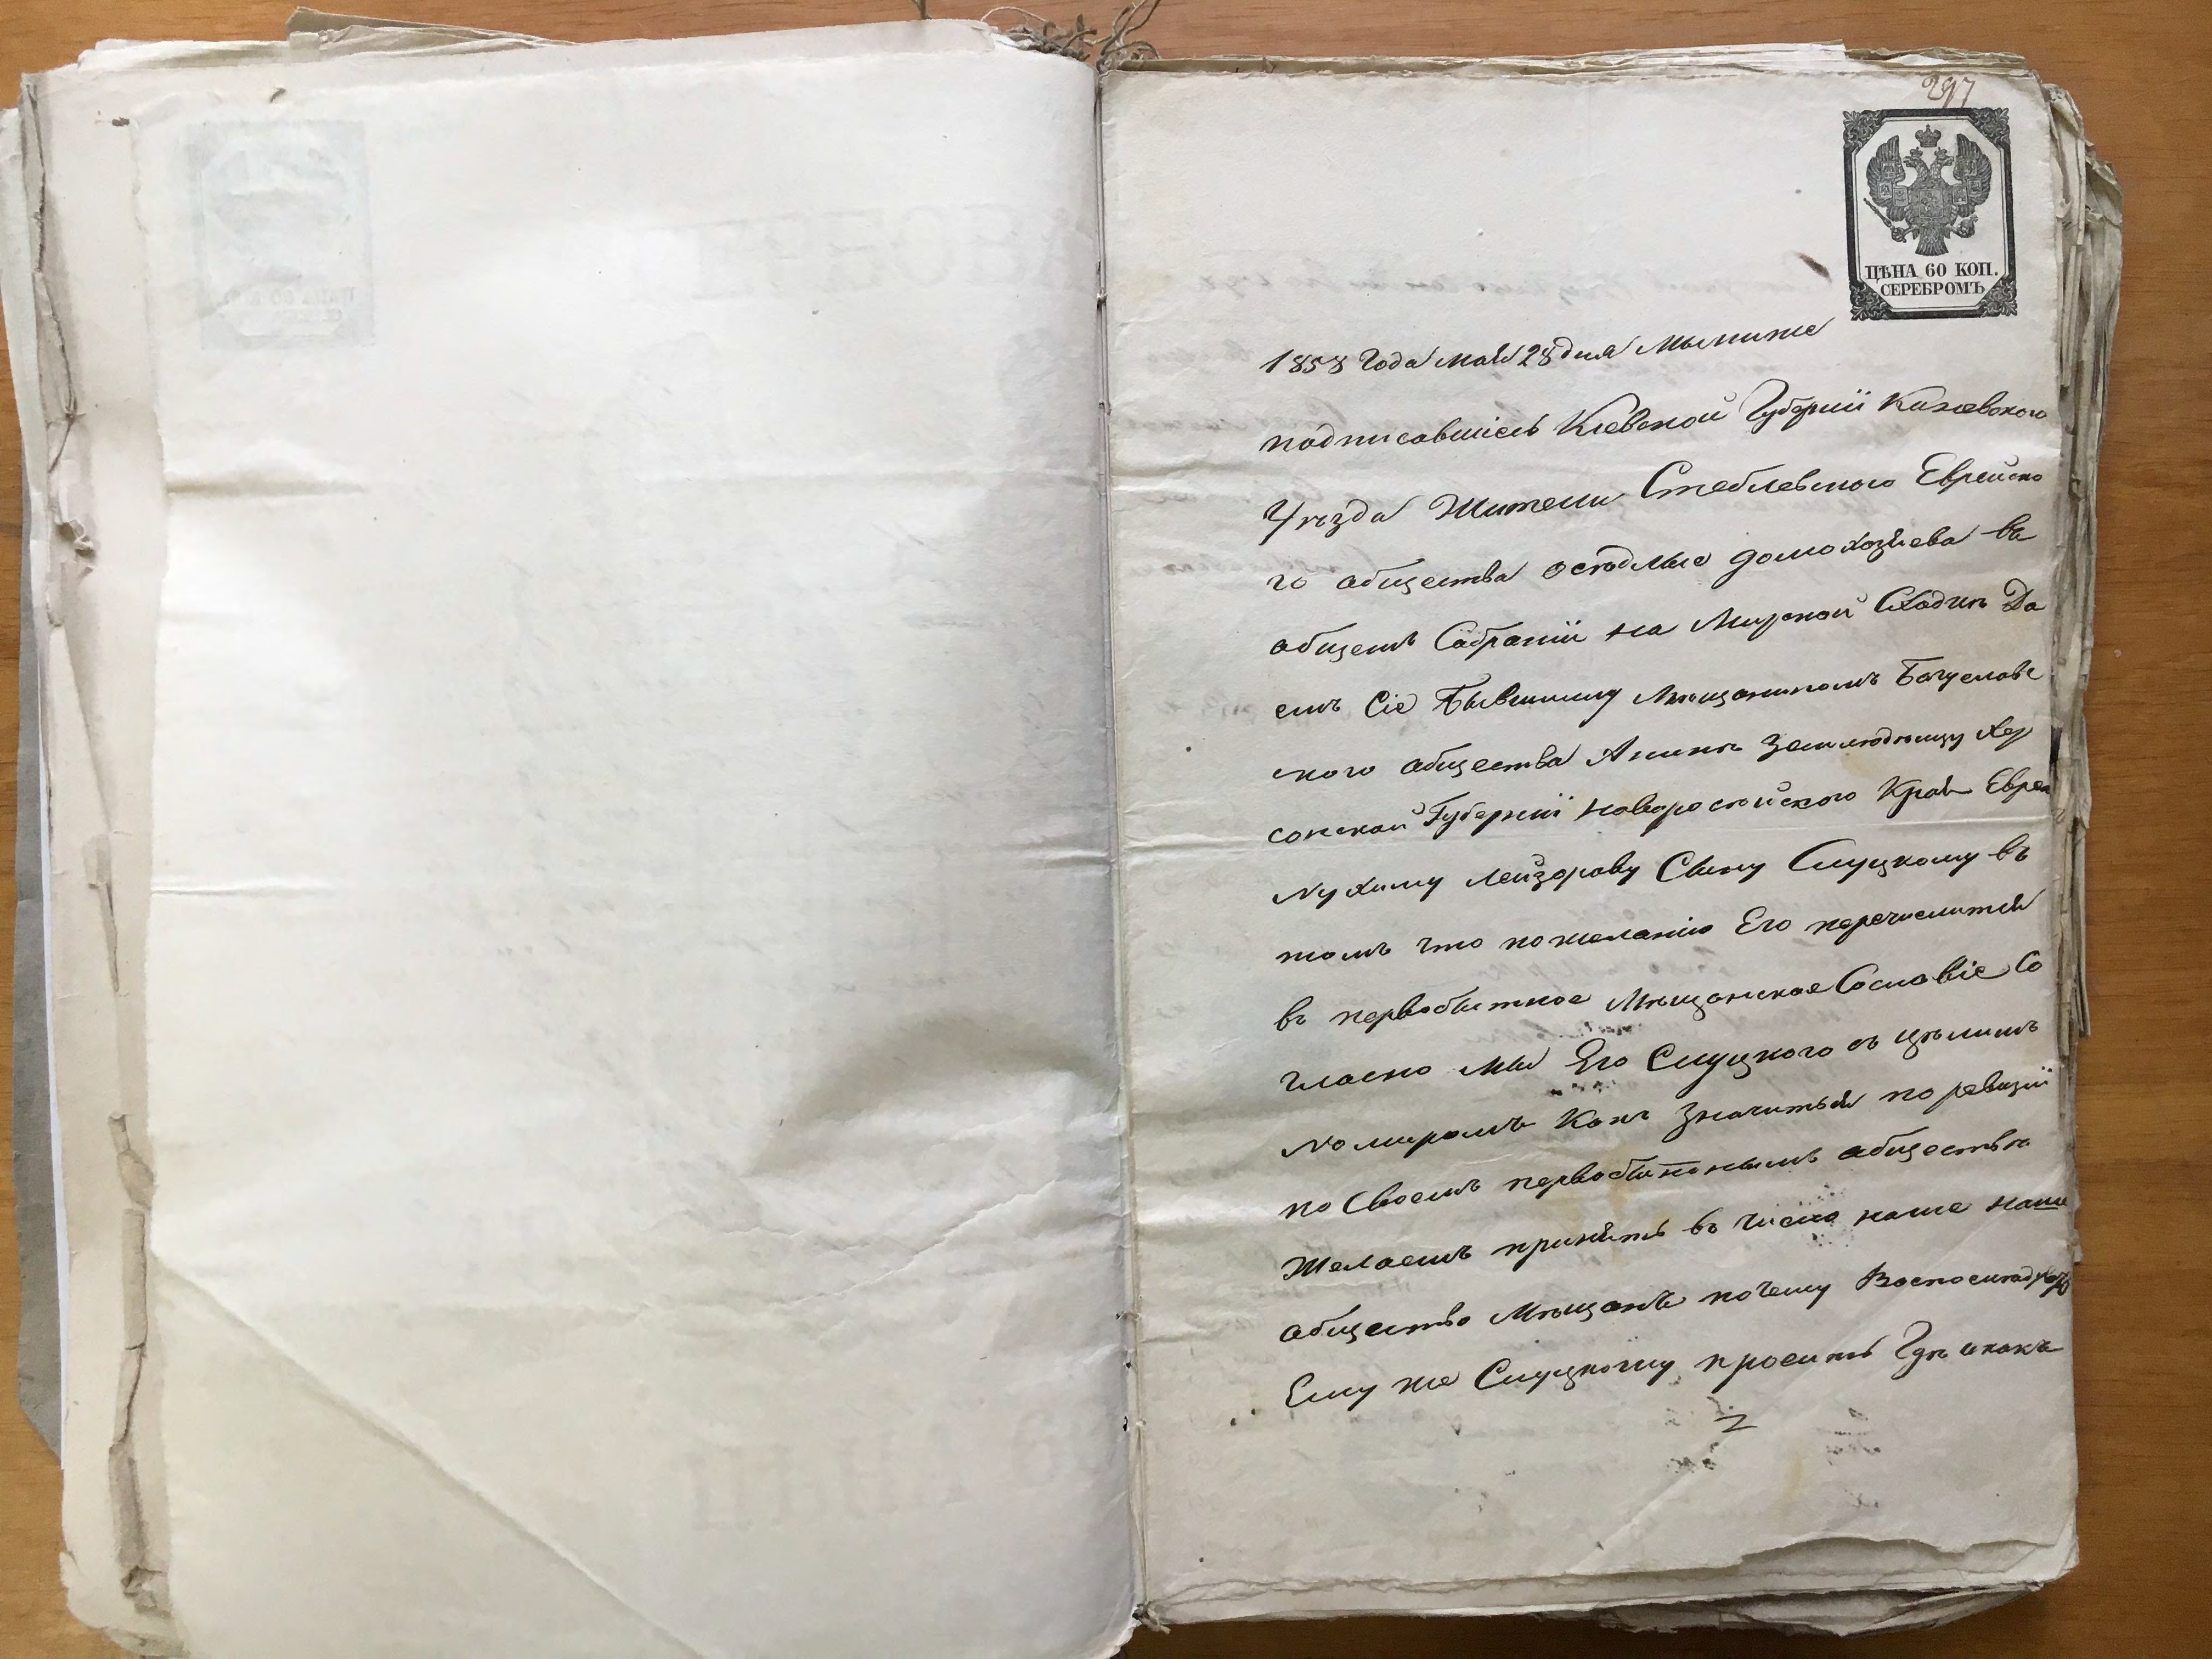 297
ЦѢНА 60 КОП.
СЕРЕБРОМЪ
1858 Года мая 28 дня Мы ниже
подписавшіесь Кіевской Губерніи Каневского
Уѣзда Жители Стеблевского Еврейско
го общества осѣдлые домохозяева въ
общемъ Собраніи на Мирской Сходкѣ Да
емъ Сіе Бывшему Мѣщаниномъ Богуславс
кого общества А нынѣ Земледѣльцу Хер
сонской Губерніи Новоросійского Края Еврею
Нухиму Лейзорову Сыну Слуцкому въ
томъ что по желанію Его перечислится
въ первобытное Мѣщанское Сословіе Со
гласно мы Его Слуцкого съ цѣлимъ
Какъ Значится по ревизіи
по Своемъ первобитнымъ обществѣ
Желаемъ принять въ число наше наше
общество Мѣщанъ почему
Ему же Слуцкому просить Гдѣ и какъ